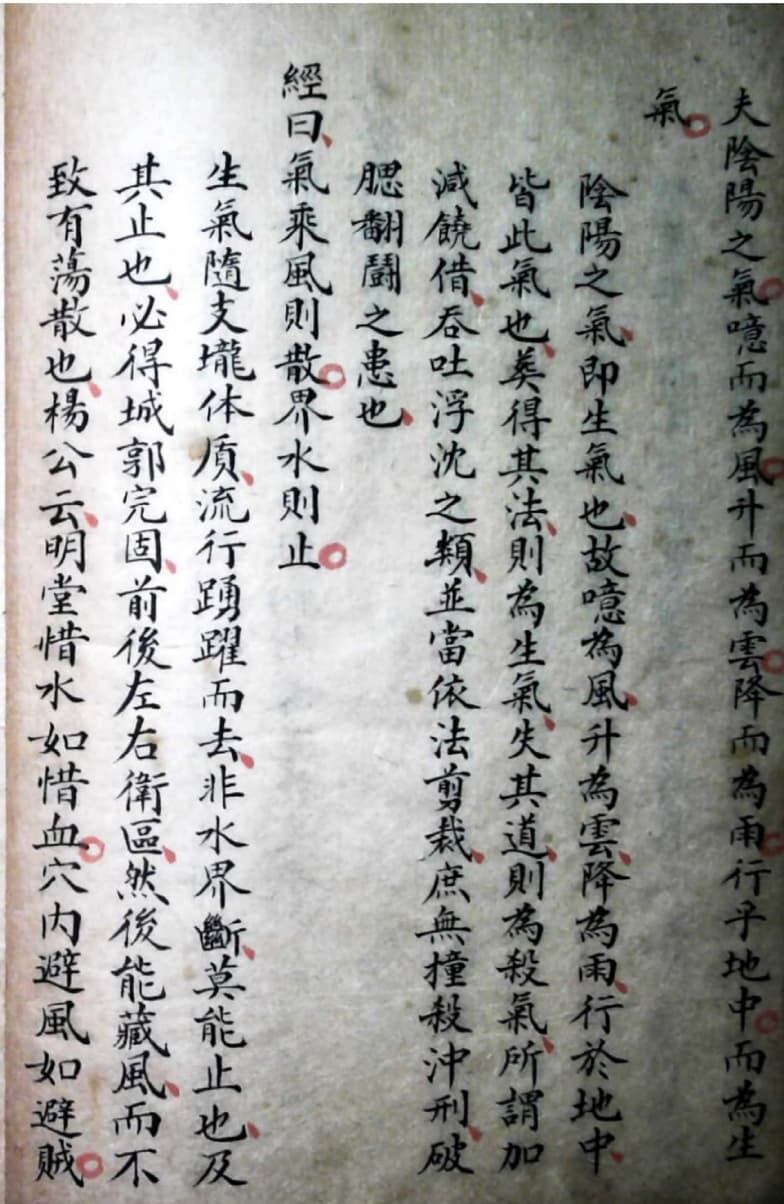 夫陰陽之氣噫而為風升而為雲降而為雨行乎地中而為生
氣
陰陽之氣即生氣也故噫為風升為雲降為雨行於地中
皆此氣也葬得其法則為生氣失其道則為殺氣所謂加
減饒借吞吐浮沈之類並當依法剪裁庶無撞殺沖刑破
腮翻鬪之患也
經曰氣乘風則散界水則止
生氣隨支壠体质流行踴躍而去非水界斷莫能止也及
其止也必得城郭完固前後左右衛區然後能藏風而不
致有蕩散也楊公云明堂惜水如惜血穴内避風如避賊